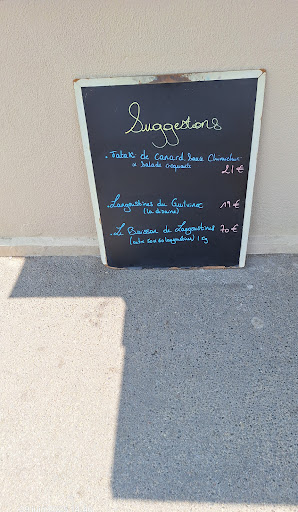 Suggestions
. Tatak de canard sauce Chimichuri
& salade croquante
21 €
. Langoustines du Guilvinec 19 €
(la dizaine)
. Le Buisson de Langoustines 70 €
langoustines) 1 kg